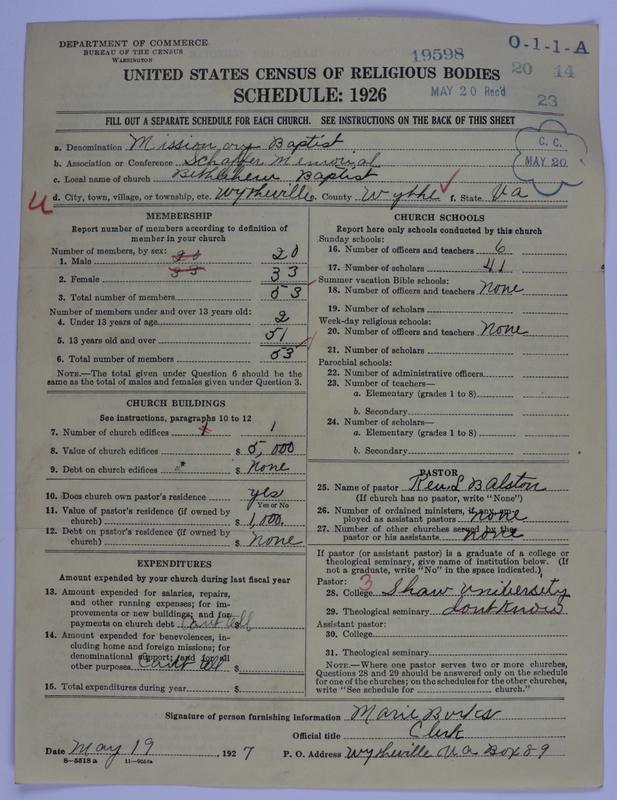 DEPARTMENT OF COMMERCE
BUREAU OF THE CENSUS
WASHINGTON
19598
O-1-1-A
20 14
MAY 20 Rec'd
23
UNITED STATES CENSUS OF RELIGIOUS BODIES
SCHEDULE: 1926
FILL OUT A SEPARATE SCHEDULE FOR EACH CHURCH. SEE INSTRUCTIONS ON THE BACK OF THIS SHEET
C. C.
MAY 20
a. Denomination Missionary Baptist
b. Association or Conference Schaffer Memorial
c. Local name of church Bethlehem Baptist
d. City, town, village, or township, etc. Wytheville e. County Wythe f. State Va
MEMBERSHIP
Report number of members according to definition of member in your church
Number of members, by sex:
1. Male 20 20
2. Female 33 33
3. Total number of members 53
Number of members under and over 13 years old:
4. Under 13 years of age 2
5. 13 years old and over 51
6. Total number of members 53
NOTE.—The total given under Question 6 should be the same as the total of males and females given under Question 3.
CHURCH BUILDINGS
See instructions, paragraphs 10 to 12
7. Number of church edifices 1 1
8. Value of church edifices $ 5,000
9. Debt on church edifices $ None
10. Does church own pastor's residence yes
Yes or No
11. Value of pastor's residence (if owned by church) $ 1,000.
12. Debt on pastor's residence (if owned by church) $ None
EXPENDITURES
Amount expended by your church during last fiscal year
13. Amount expended for salaries, repairs, and other running expenses; for improvements or new buildings; and for payments on church debt Cant tell $
14. Amount expended for benevolences, including home and foreign missions; for denominational support; and for all other purposes Cant tell $
15. Total expenditures during year $
CHURCH SCHOOLS
Report here only schools conducted by this church
Sunday schools:
16. Number of officers and teachers 6
17. Number of scholars 41
Summer vacation Bible schools:
18. Number of officers and teachers None
19. Number of scholars
Week-day religious schools:
20. Number of officers and teachers None
21. Number of scholars
Parochial schools:
22. Number of administrative officers
23. Number of teachers—
a. Elementary (grades 1 to 8)
b. Secondary
24. Number of scholars—
a. Elementary (grades 1 to 8)
b. Secondary
PASTOR
25. Name of pastor Rev. L Balston
(If church has no pastor, write "None")
26. Number of ordained ministers, if any, employed as assistant pastors none
27. Number of other churches served by the pastor or his assistants none
If pastor (or assistant pastor) is a graduate of a college or theological seminary, give name of institution below. (If not a graduate, write "No" in the space indicated.)
Pastor: 3
28. College Shaw University
29. Theological seminary dont know
Assistant pastor:
30. College
31. Theological seminary
NOTE.—Where one pastor serves two or more churches, Questions 28 and 29 should be answered only on the schedule for one of the churches; on the schedules for the other churches, write "See schedule for church."
Signature of person furnishing information Marie Burks
Official title Clerk
Date May 19, 1927 P. O. Address Wytheville Va Box 89
8-5518 a 11-9054a